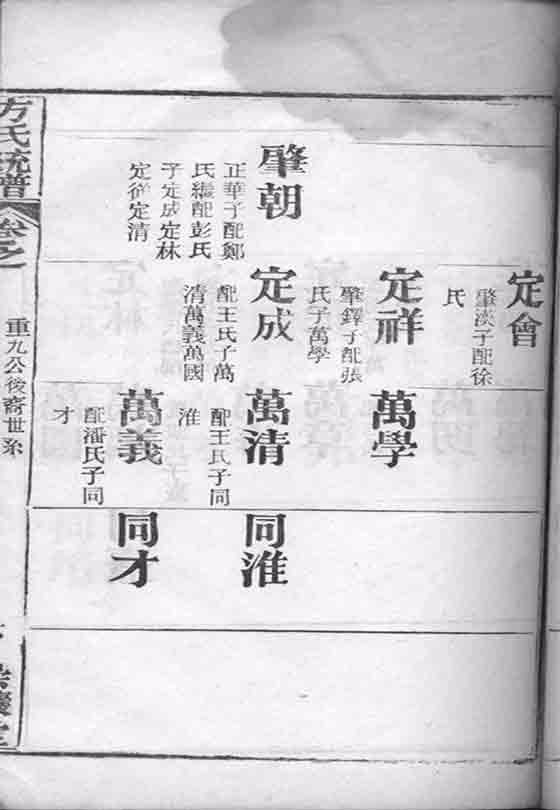 定會
肇漢子配徐
氏
定祥
肇鐸子配張
氏子萬學
萬學
肇朝
正華子配鄭
氏繼配彭氏
子定成定林
定從定清
定成
配王氏子萬
清萬義萬國
萬清
配王氏子同
淮
同淮
萬義
配潘氏子同
才
同才
方氏統譜
卷之一
重九公後裔世系